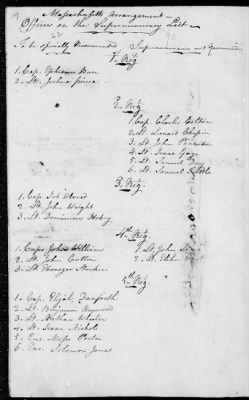 Massachusetts Arrangement
Officers on the Supernumerary List
To be specially Recommended Supernumeraries not Recommended
1st Reg
1. Cap. Ephraim Burr
2. Lt. Joshua
2. Reg
1. Cap. Charles Colton
2. Lt. Leonard Chapin
3. Lt. John
4. Lt. Isaac Gage
5. Lt. Samuel
6. Lt. Samuel
3. Reg.
1. Cap. Job Alvord
2. Lt. John Wright
3. Lt. Dominicus Hovey
4th Reg.
1. Capt. John William
2. Lt. John Cotton
3. Lt. Ebenezer
1. Lt. John
2. Lt.
5th Reg
1. Cap. Elijah Danforth
2. Lt. Benjamin Heywood
3. Lt. Nathan Wheeler
4. Lt. Isaac Nichols
5. Ens. Moses Porter
6. Ens. Solomon Jones